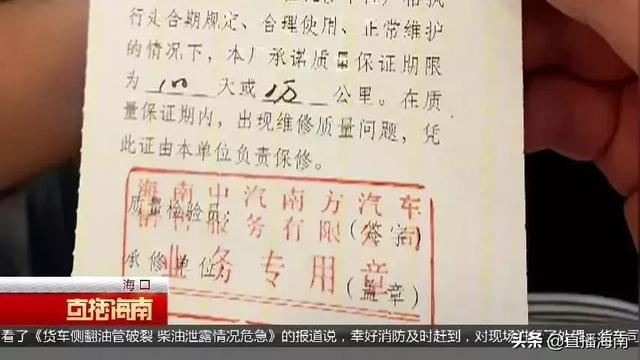 行走合期规定、合理使用、正常维护
的情况下,本厂承诺质量保证期限
为 100 天或 1万 公里。在质
量保证期内,出现维修质量问题,凭
此证由本单位负责保修。
海南中汽南方汽车
销售服务有限公司
质量检验员: (签字)
业务专用章
承修单位 (盖章)
海口
直播海南
看了《货车侧翻油管破裂 柴油泄露情况危急》的报道说,幸好消防及时赶到,对现场进行了处理,货车司
头条 @直播海南